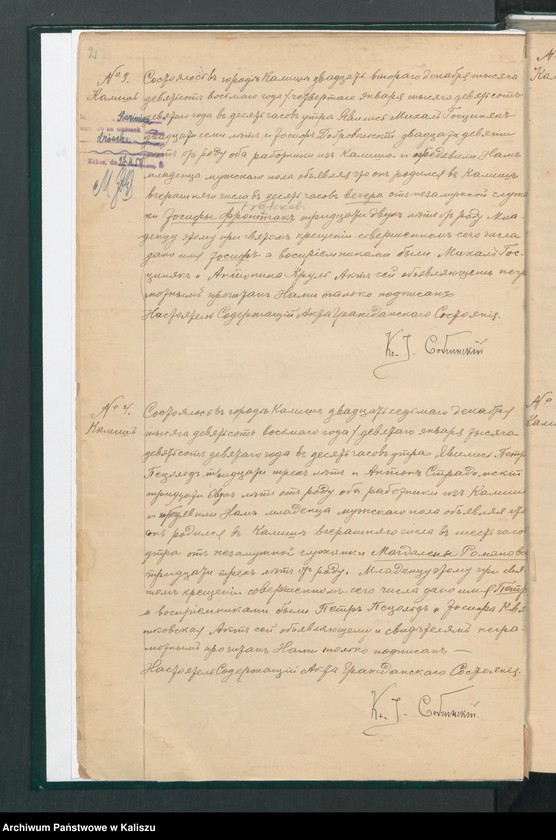 2
№ 3.
Калишъ
Состоялось въ городѣ Калишѣ двадцать втораго декабря тысяча
девятьсотъ восьмаго года /четвертаго января тысяча девятьсотъ
девятаго года въ десять часовъ утра. Явились Михаилъ Госцинякъ
двадцати семи лѣтъ и Іосифъ двадцати девяти
лѣтъ отъ роду оба работники изъ Калиша и предъявили Намъ
младенца мужескаго пола объявляя что онъ родился въ Калишѣ
вчерашняго числа въ десять часовъ вечера отъ незамужной служан
ки Іосифы Фронтчакъ тридцати двухъ лѣтъ отъ роду. Мла-
денцу этому при святомъ крещеніи совершенномъ сего числа
дано имя Іосифъ а воспріемниками были Михаилъ Гос-
цинякъ и Антонина Круль. Актъ сей объявляющимъ негра
мотнымъ прочитанъ Нами только подписанъ
Настоятель Содержащій Акты Гражданскаго Состоянія.
Кс. І.
№ 4.
Калишъ
Состоялось въ городѣ Калишѣ двадцать седьмаго декабря
тысяча девятьсотъ восьмаго года /девятаго января тысяча
девятьсотъ девятаго года въ десять часовъ утра. Явились Петръ
тридцати трехъ лѣтъ и Антонъ Страдомскій
тридцати двухъ лѣтъ отъ роду оба работники изъ Калиша
и предъявили Намъ младенца мужескаго пола объявляя что
онъ родился въ Калишѣ вчерашняго числа въ шесть часовъ
утра отъ незамужной служанки Магдалены
тридцати трехъ лѣтъ отъ роду. Младенцу этому при свя-
томъ крещеніи совершенномъ сего числа дано имя Петръ
а воспріемниками были Петръ и Іосифа
Актъ сей объявляющему и свидѣтелямъ негра-
мотнымъ прочитанъ Нами только подписанъ —
Настоятель Содержащій Акты Гражданскаго Состоянія.
Кс. І.
Archiwum Państwowe w Kaliszu